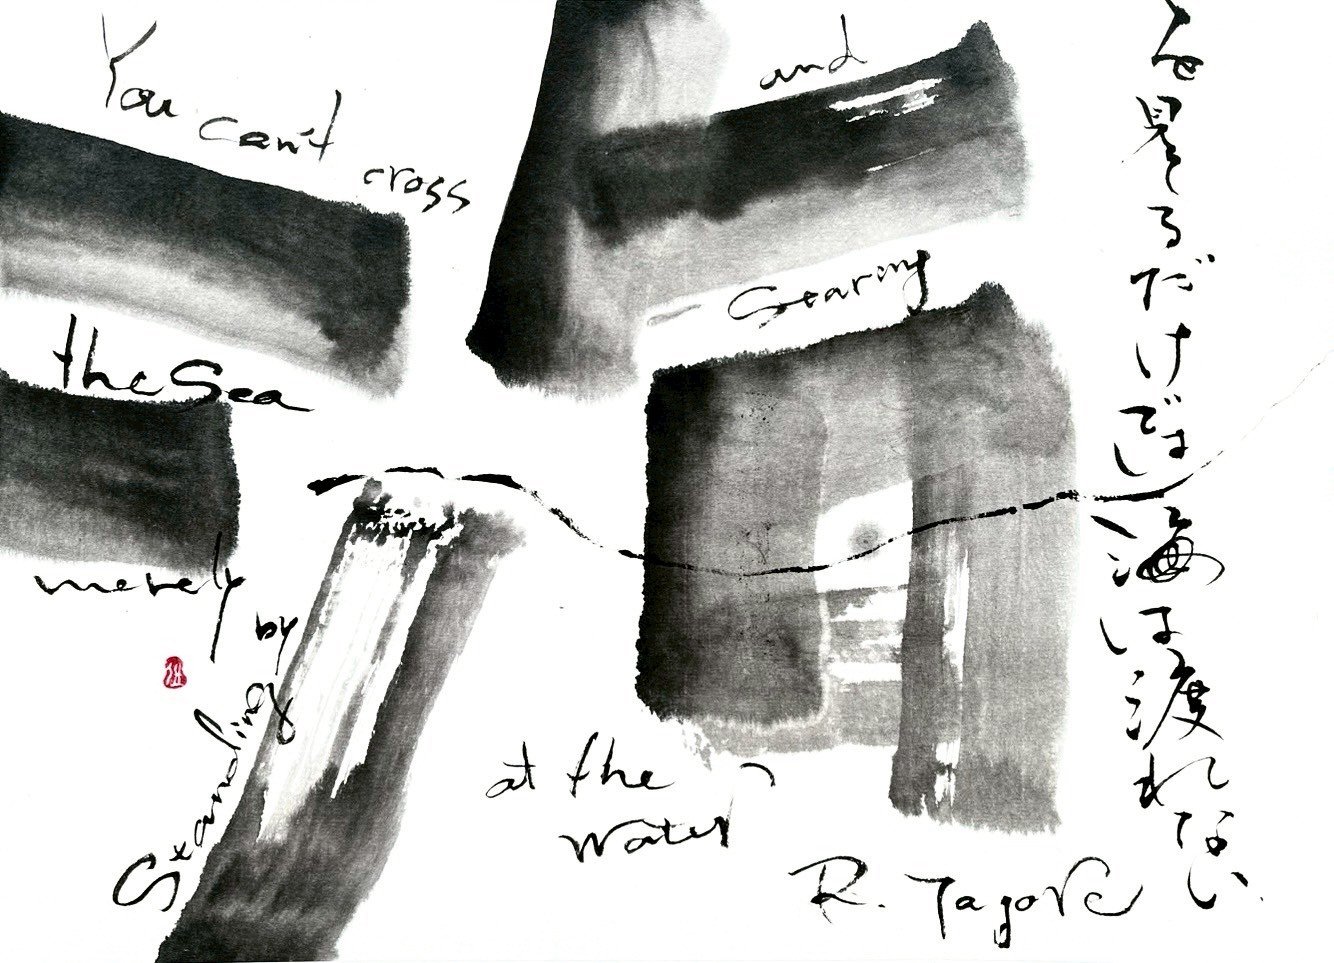 You can't cross
the Sea
merely by
Standing
and
Staring
at the
Water
R. Tagore
を見るだけでは海は渡れない